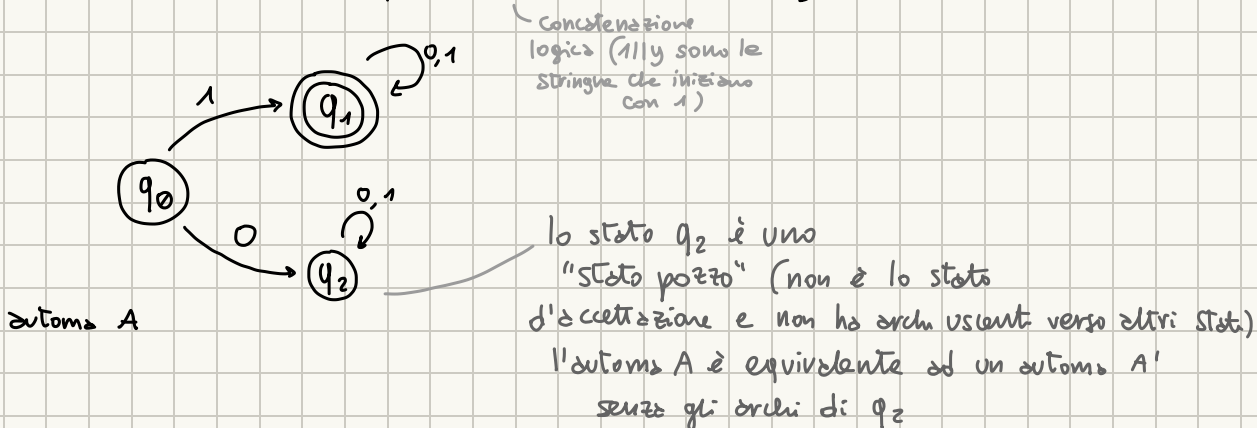 Concatenazione
logica (1||y sono le
stringhe che iniziano
con 1)
0,1
1
q1
q0
0,1
0
q2
lo stato q2 è uno
"stato pozzo" (non è lo stato
d'accettazione e non ha archi uscenti verso altri stati)
automa A
l'automa A è equivalente ad un automa A'
senza gli archi di q2